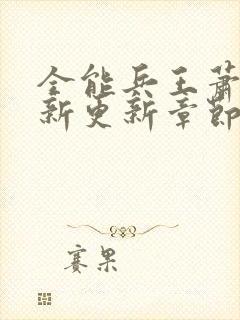 全能兵王萧
新更新章節
赛果